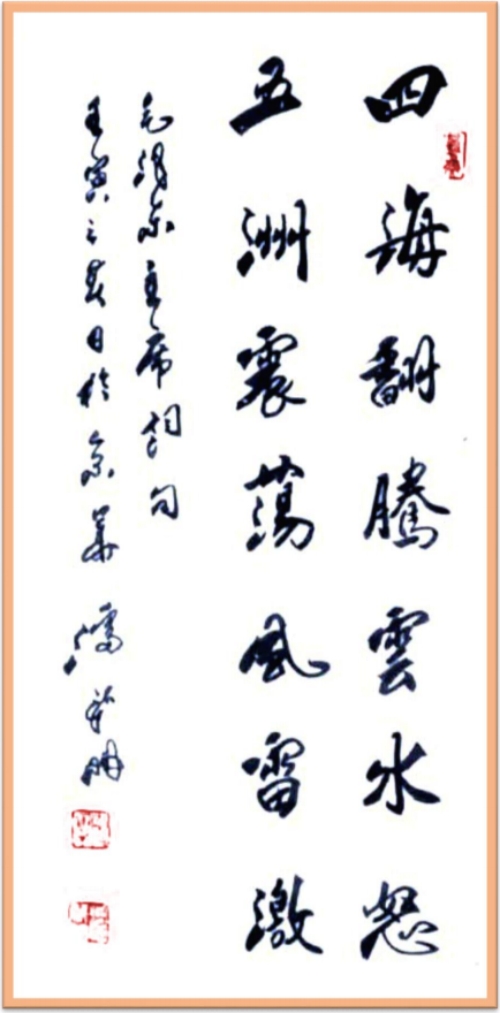 四海翻騰雲水怒
五洲震蕩風雷激
毛澤东主席詞句
壬寅之夏日於京華